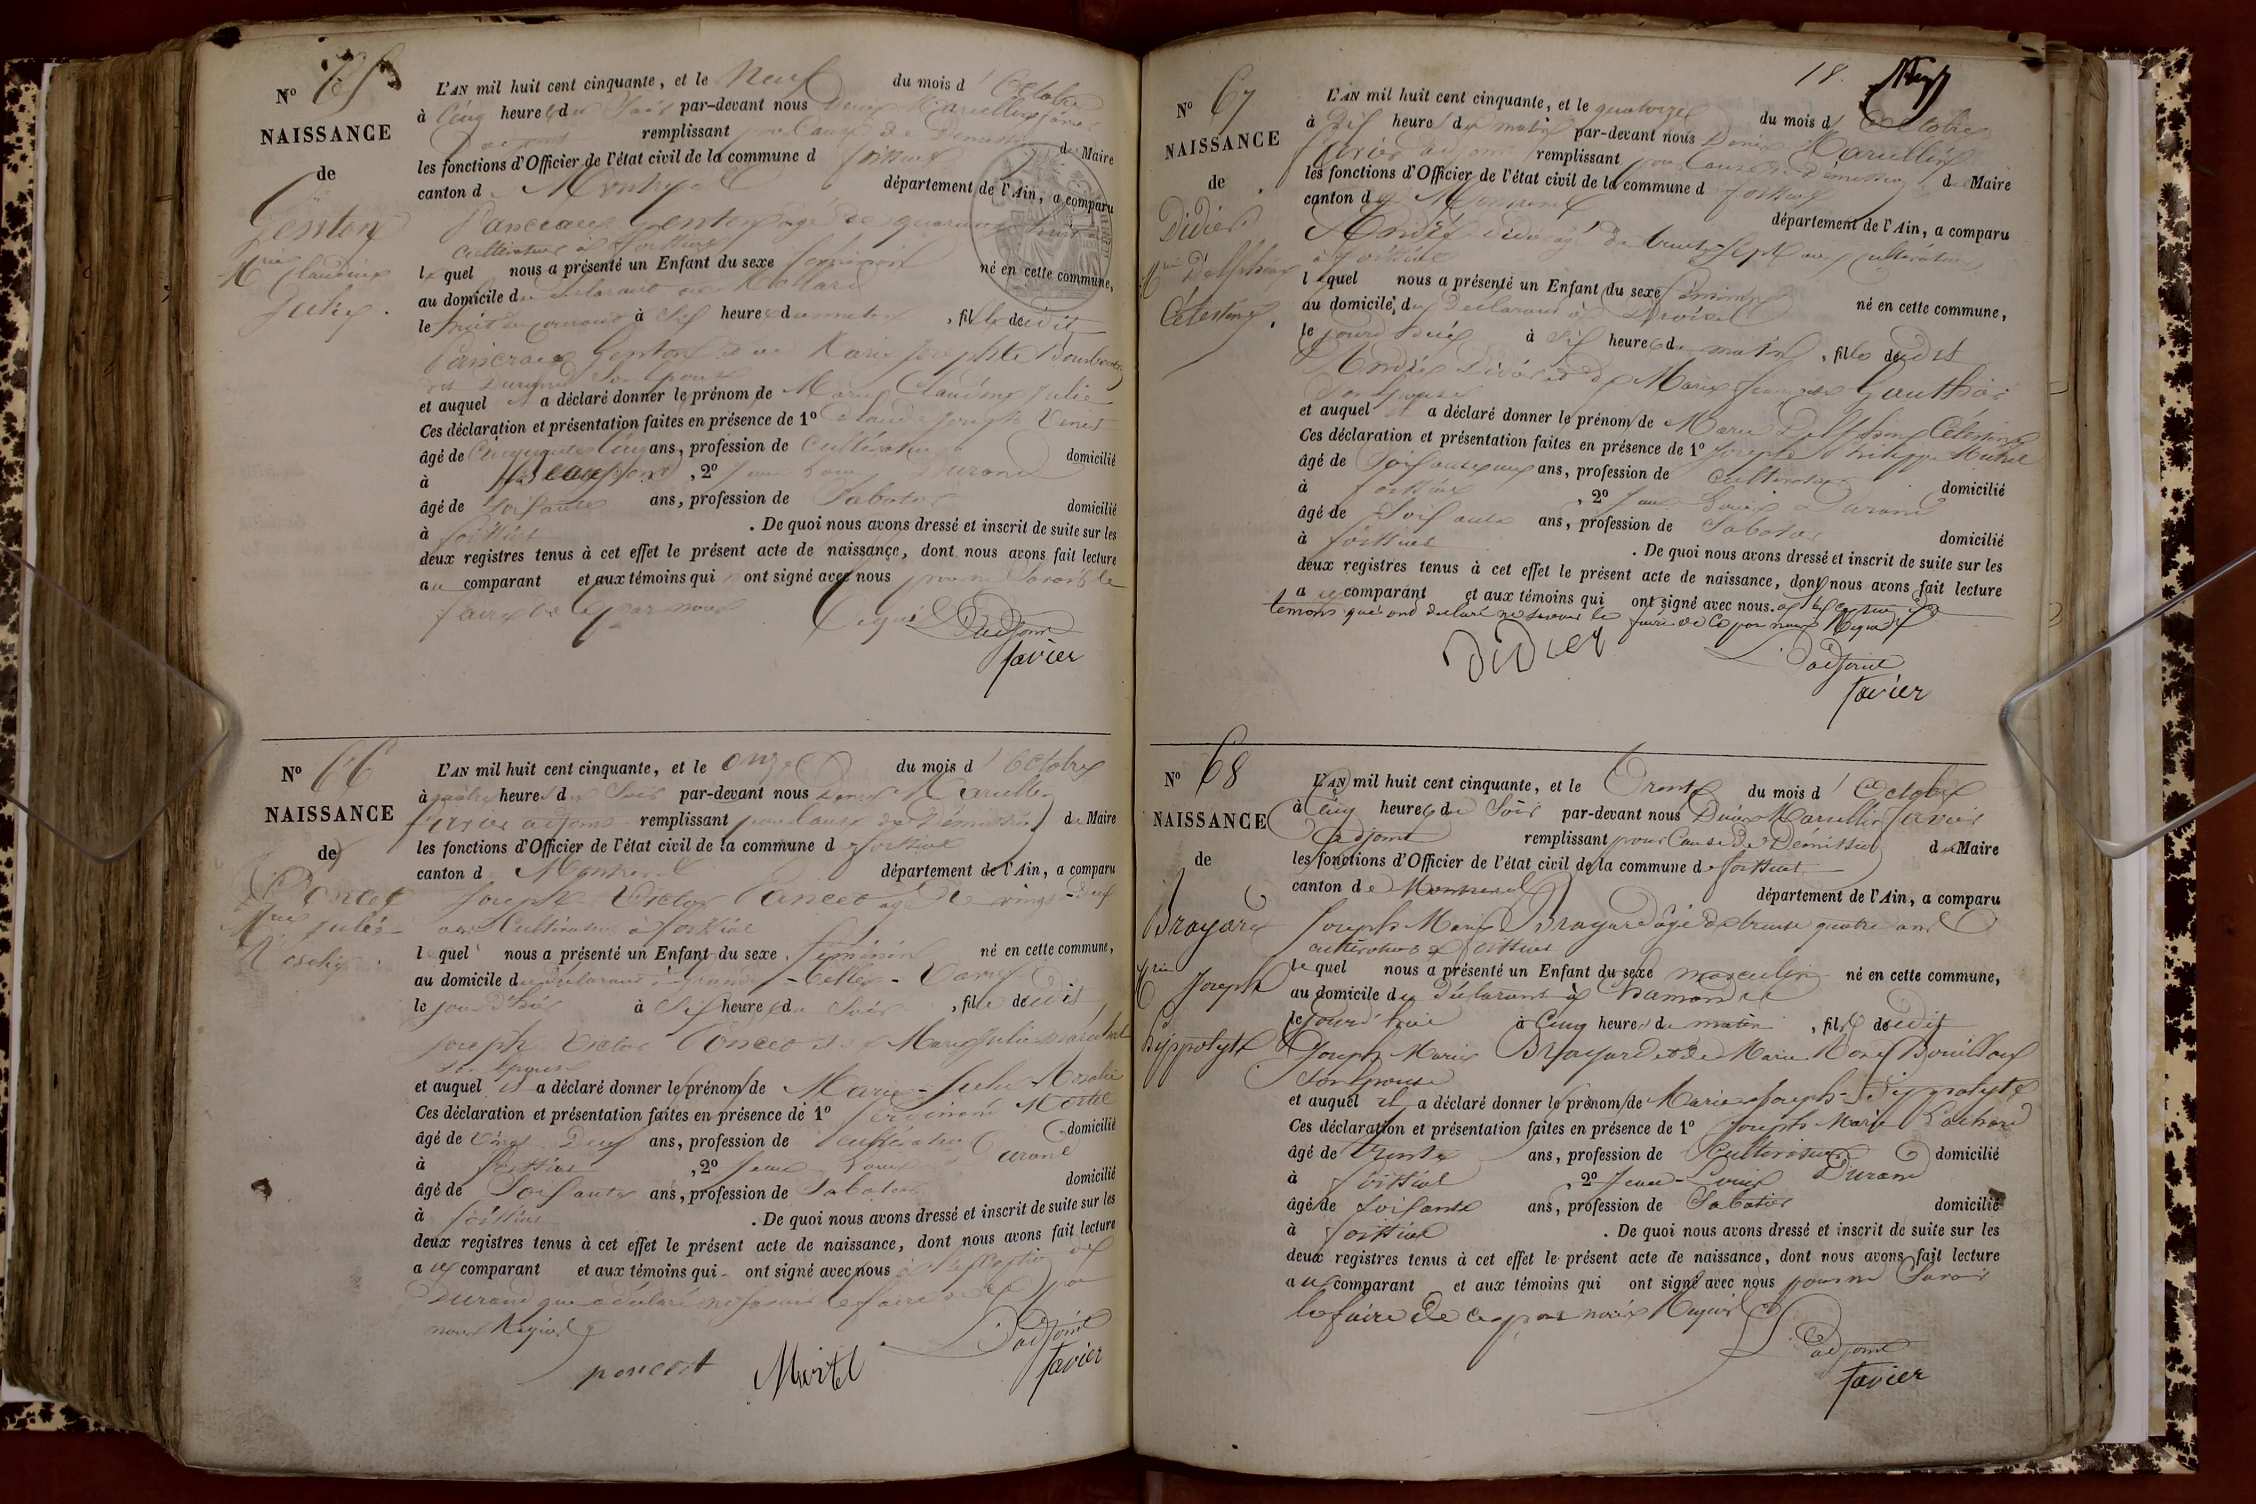 N° 65
NAISSANCE
de
Genton
Mie Claudine
Julie.
L'AN mil huit cent cinquante, et le Neuf du mois d'Octobre
à Cinq heures du Soir par-devant nous Denis Marcellin favier
remplissant pour Cause de Démission du Maire
les fonctions d'Officier de l'état civil de la commune de foissiat
canton de Montrevel département de l'Ain, a comparu
Pancrace Genton âgé de quarante
cultivateur à foissiat
lequel nous a présenté un Enfant du sexe féminin né en cette commune,
au domicile du déclarant
le huit du courant à Six heures du matin, fille dudit
Pancrace Genton et de Marie Josephte
Son épouse
et auquel il a déclaré donner le prénom de Marie Claudine Julie
Ces déclaration et présentation faites en présence de 1° Claude Joseph
âgé de Cinquante Cinq ans, profession de Cultivateur domicilié
à , 2° Jean Louis Durand
âgé de Soixante ans, profession de Sabotier domicilié
à foissiat . De quoi nous avons dressé et inscrit de suite sur les
deux registres tenus à cet effet le présent acte de naissance, dont nous avons fait lecture
au comparant et aux témoins qui n'ont signé avec nous pour ne Savoir le
faire de ce par nous Requis L'adjoint
favier
N° 66
NAISSANCE
de
Poncet
Mie Julie
Rosalie.
L'AN mil huit cent cinquante, et le onze du mois d'Octobre
à quatre heures du Soir par-devant nous Denis Marcellin
favier adjoint remplissant pour Cause de Démission du Maire
les fonctions d'Officier de l'état civil de la commune de foissiat
canton de Montrevel département de l'Ain, a comparu
Joseph Victor Poncet âgé de vingt-Deux
ans Cultivateur à foissiat
lequel nous a présenté un Enfant du sexe féminin né en cette commune,
au domicile du déclarant à
le jour d'hier à Six heures du Soir, fille dudit
Joseph Victor Poncet et de Marie Julie Maréchal
Son épouse
et auquel il a déclaré donner le prénom de Marie-Julie-Rosalie
Ces déclaration et présentation faites en présence de 1°
âgé de Vingt Deux ans, profession de Cultivateur domicilié
à foissiat, 2° Jean Louis Durand
âgé de Soixante ans, profession de Sabotier domicilié
à foissiat . De quoi nous avons dressé et inscrit de suite sur les
deux registres tenus à cet effet le présent acte de naissance, dont nous avons fait lecture
au comparant et aux témoins qui ont signé avec nous à l'exception de
Durand qui a déclaré ne savoir le faire de ce par
nous Requis
poncet L'adjoint
favier
18.
N° 67
NAISSANCE
de
Didier
Mie Delphine
Célestine.
L'AN mil huit cent cinquante, et le quatorze du mois d'Octobre
à Dix heures du matin par-devant nous Denis Marcellin
favier adjoint remplissant pour Cause de Démission du Maire
les fonctions d'Officier de l'état civil de la commune de foissiat
canton de Montrevel département de l'Ain, a comparu
André Didier âgé de trente-Sept ans cultivateur
à foissiat
lequel nous a présenté un Enfant du sexe féminin né en cette commune,
au domicile du déclarant à
le jour d'hier à Six heures du matin, fille dudit
André Didier et de Marie françoise Gauthier
Son épouse
et auquel il a déclaré donner le prénom de Marie Delphine Célestine
Ces déclaration et présentation faites en présence de 1° Joseph Philippe
âgé de ans, profession de cultivateur domicilié
à foissiat, 2° Jean Louis Durand
âgé de Soixante ans, profession de Sabotier domicilié
à foissiat . De quoi nous avons dressé et inscrit de suite sur les
deux registres tenus à cet effet le présent acte de naissance, dont nous avons fait lecture
au comparant et aux témoins qui ont signé avec nous à l'exception des
témoins qui ont déclaré ne savoir le faire de ce par nous Requis
Didier L'adjoint
favier
N° 68
NAISSANCE
de
Brayard
Mie Joseph
hippolyte
L'AN mil huit cent cinquante, et le Trente du mois d'Octobre
à Cinq heures du Soir par-devant nous Denis Marcellin favier
adjoint remplissant pour Cause de Démission du Maire
les fonctions d'Officier de l'état civil de la commune de foissiat
canton de Montrevel département de l'Ain, a comparu
Joseph Marie Brayard âgé de trente quatre ans
cultivateur à foissiat
lequel nous a présenté un Enfant du sexe masculin né en cette commune,
au domicile du déclarant à
le jour d'hier à Cinq heures du matin, fils dudit
Joseph Marie Brayard et de Marie Rose Bouilloux
Son épouse
et auquel il a déclaré donner le prénom de Marie-Joseph-Hippolyte
Ces déclaration et présentation faites en présence de 1° Joseph Marie
âgé de Trente ans, profession de Cultivateur domicilié
à foissiat, 2° Jean-Louis Durand
âgé de Soixante ans, profession de Sabotier domicilié
à foissiat . De quoi nous avons dressé et inscrit de suite sur les
deux registres tenus à cet effet le présent acte de naissance, dont nous avons fait lecture
au comparant et aux témoins qui ont signé avec nous pour ne Savoir
le faire de ce par nous Requis
L'adjoint
favier